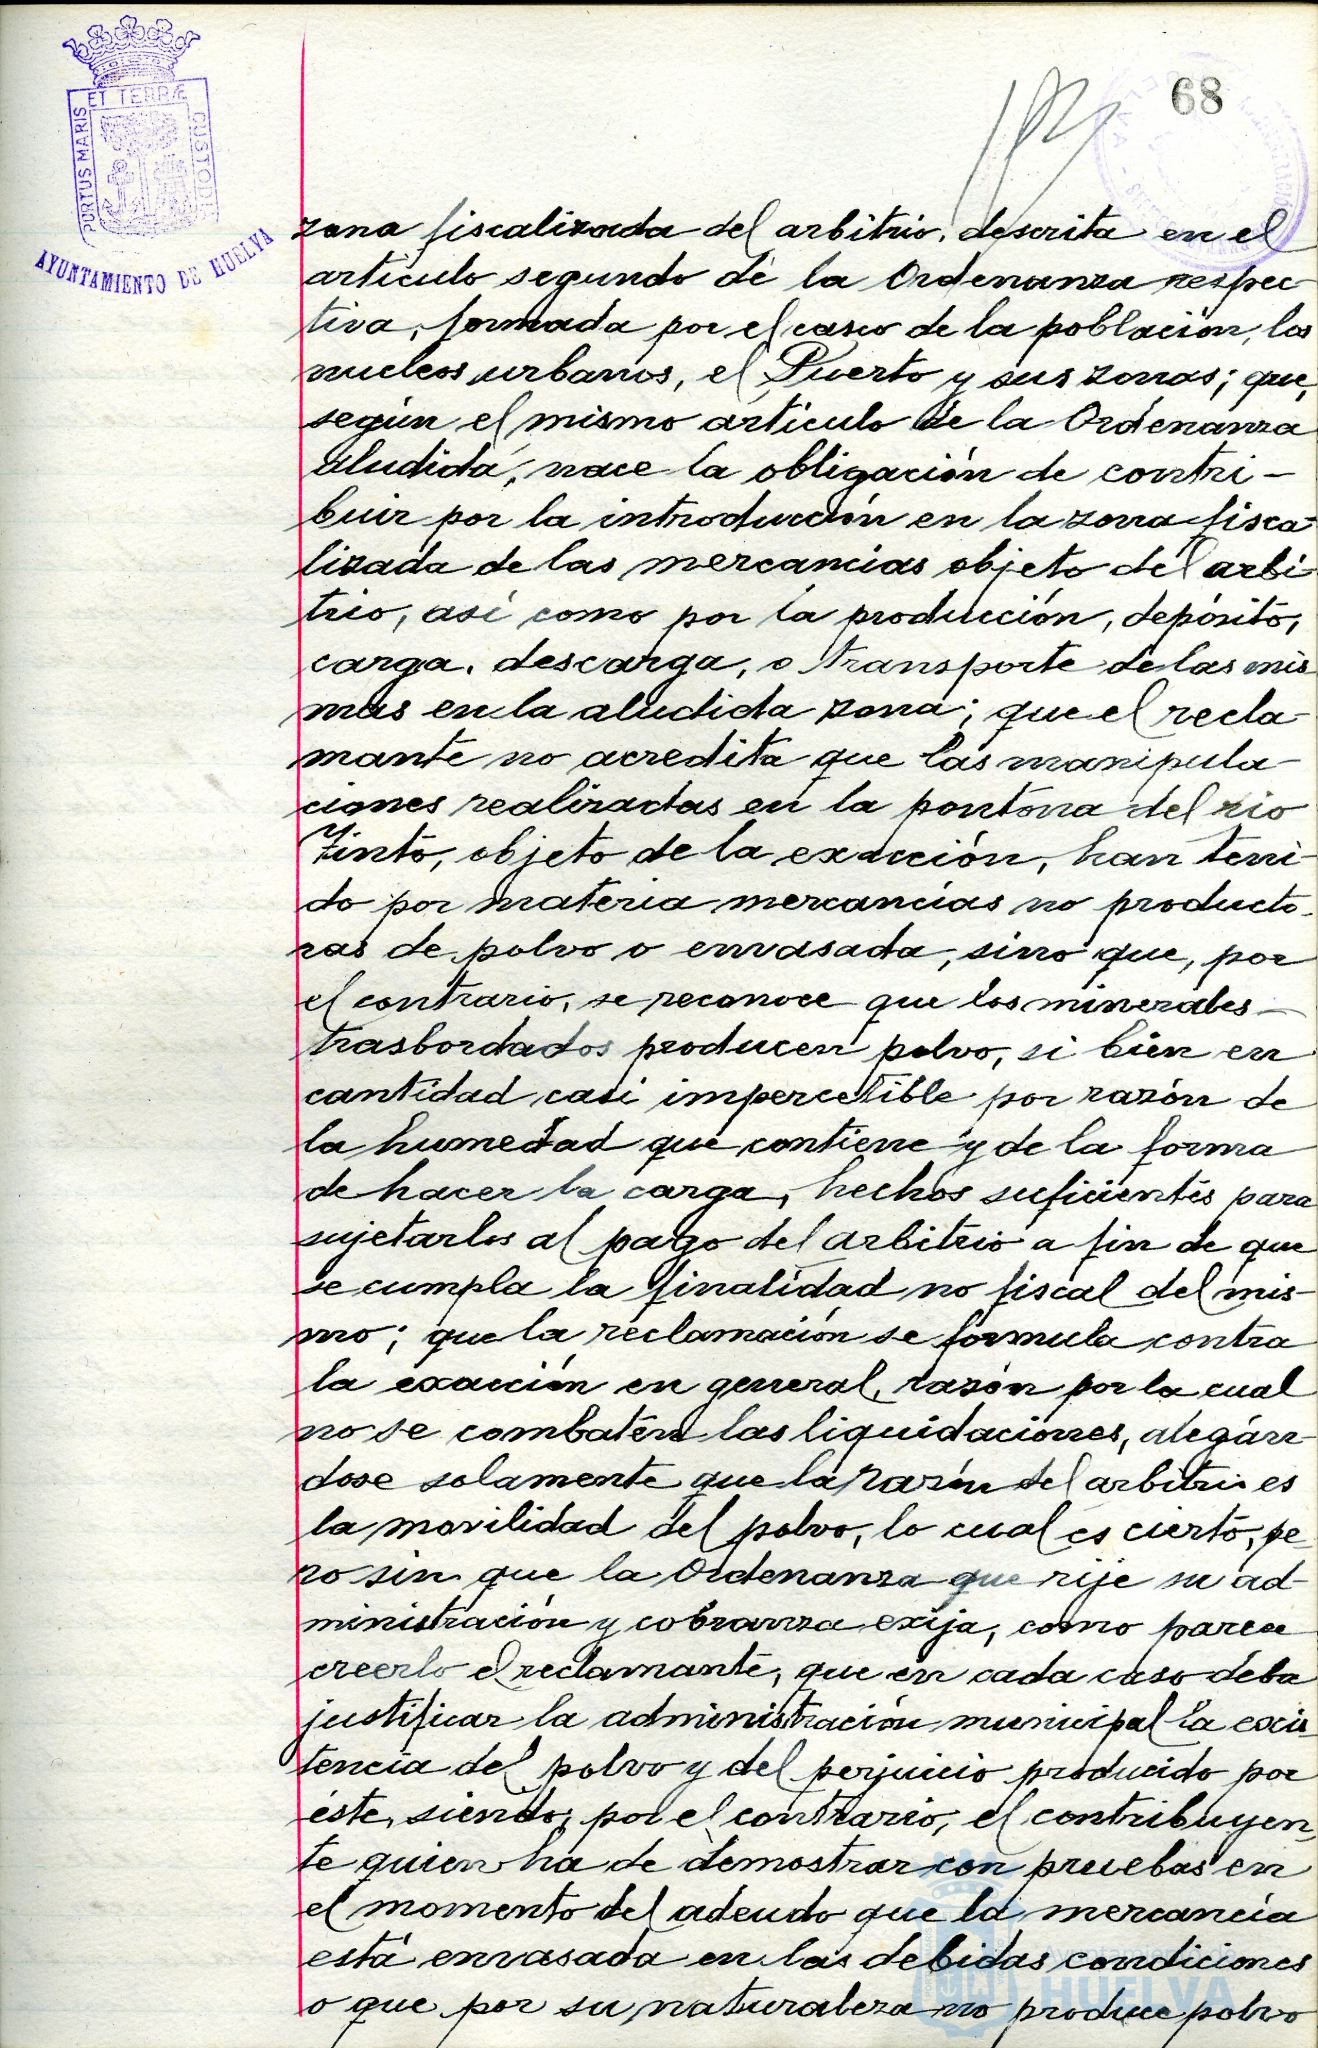 68
PORTUS MARIS
ET TERRÆ
CUSTODIA
AYUNTAMIENTO DE HUELVA
zona fiscalizada del arbitrio, descrita en el
artículo segundo de la Ordenanza respec-
tiva, formada por el casco de la población, los
nucleos urbanos, el Puerto y sus zonas; que,
según el mismo artículo de la Ordenanza
aludida, nace la obligación de contri-
buir por la introducción en la zona fisca-
lizada de las mercancías objeto del arbi-
trio, así como por la producción, depósito,
carga, descarga, o transporte de las mis-
mas en la aludida zona; que el recla-
mante no acredita que las manipula-
ciones realizadas en la pontona del rio
Tinto, objeto de la exacción, han teni-
do por materia mercancías no producto-
ras de polvo o envasada, sino que, por
el contrario, se reconoce que los minerales
trasbordados producen polvo, si bien en
cantidad casi impercetible por razón de
la humedad que contiene y de la forma
de hacer la carga, hechos suficientes para
sujetarlos al pago del arbitrio a fin de que
se cumpla la finalidad no fiscal del mis-
mo; que la reclamación se formula contra
la exacción en general, razón por la cual
no se combaten las liquidaciones, alegán-
dose solamente que la razón del arbitrio es
la movilidad del polvo, lo cual es cierto, pe-
ro sin que la Ordenanza que rije su ad-
ministración y cobranza exija, como parece
creerlo el reclamante, que en cada caso deba
justificar la administración municipal la exis-
tencia del polvo y del perjuicio producido por
éste, siendo, por el contrario, el contribuyen-
te quien ha de demostrar con pruebas en
el momento del adeudo que la mercancía
está envasada en las debidas condiciones
o que por su naturaleza no produce polvo
Ayuntamiento de
HUELVA